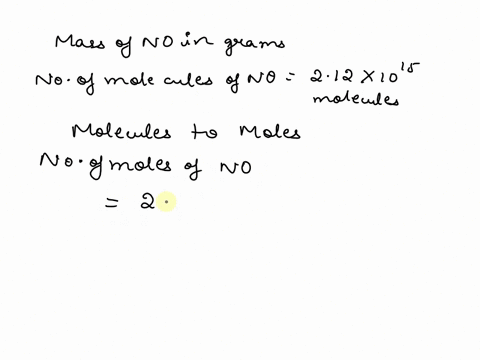 Mass of NO in grams
No. of molecules of NO = 2.12 × 10¹⁵
molecules
Molecules to Moles
No. of moles of NO
= 2.